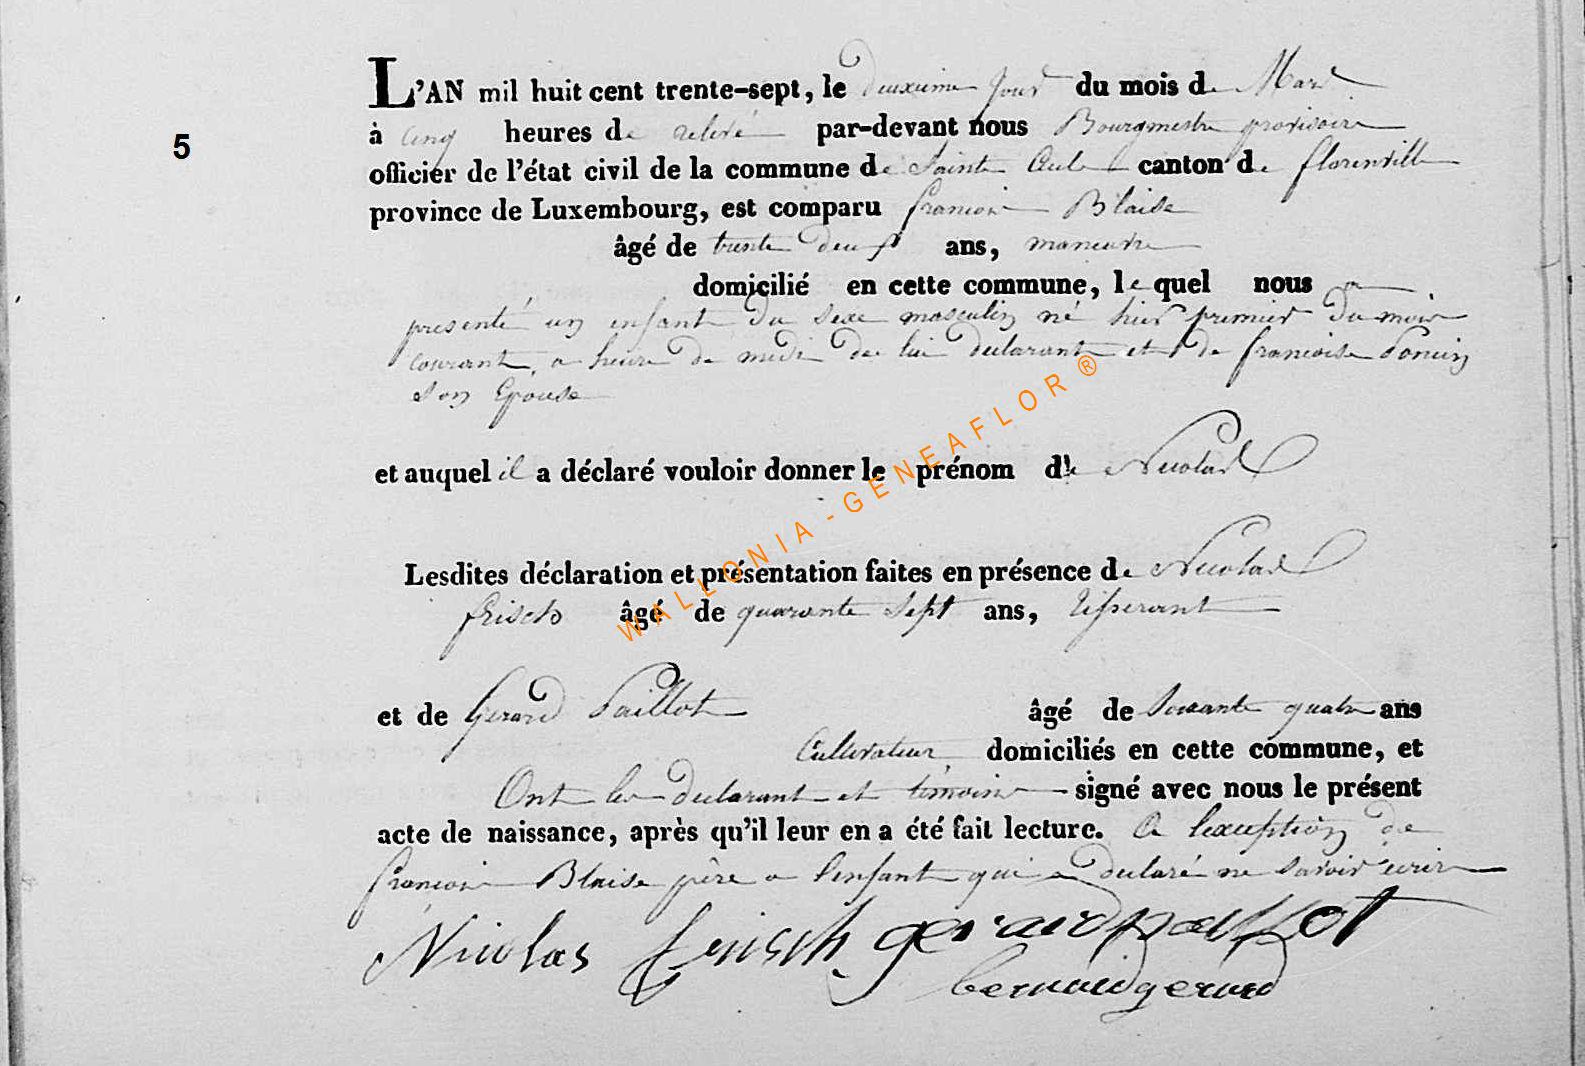 L'AN mil huit cent trente-sept, le deuxieme jour du mois de Mars
à cinq heures de relevé par-devant nous Bourgmestre provisoire
5
officier de l'état civil de la commune de Sainte Cecile canton de florenville
province de Luxembourg, est comparu françois Blaise
âgé de trente deux ans, manœuvre
domicilié en cette commune, lequel nous a
presenté un enfant du sexe masculin né hier premier du mois
courant, a heure de midi de lui declarant et de françoise Poncin
son Epouse
et auquel il a déclaré vouloir donner le prénom de Nicolas
Lesdites déclaration et présentation faites en présence de Nicolas
frisch âgé de quarante sept ans, tisserant
et de Gerard Paillot âgé de soixante quatre ans
Cultivateur, domiciliés en cette commune, et
Ont les declarant et témoins signé avec nous le présent
acte de naissance, après qu'il leur en a été fait lecture. a l'exception de
françois Blaise père a l'enfant qui a declaré ne savoir écrire
Nicolas frisch gerard paillot
bernard gerard
WALLONIA-GENEAFLOR®